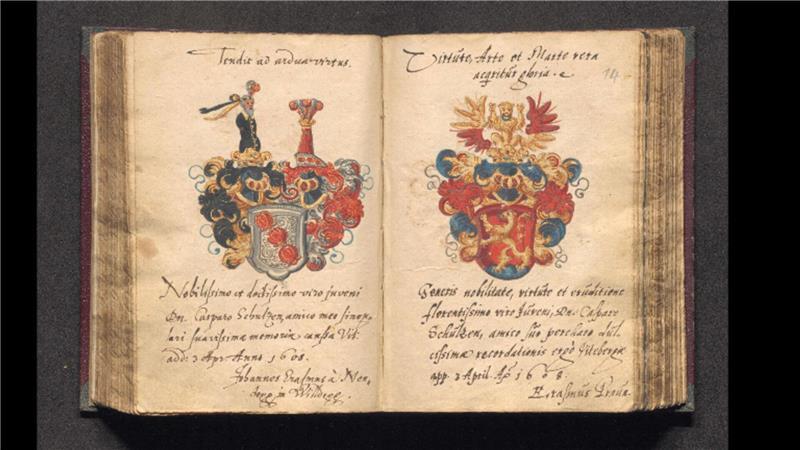 Tendit ad ardua virtus.
Nobilissimo et doctissimo viro juveni
Dn. Casparo Schultzen, amico meo singu,
lari suavissimæ memoriæ caussa Vit.
add. 3 Apr. Anno 1608.
Johannes Erasmus à
in
Virtute, Arte et Marte vera
acqritur gloria.
74
Generis nobilitate, virtute et eruditione
florentissimo viro Juveni, Dn. Casparo
Schultzen, amico suo percharo dul,
cissimæ recordationis ergò Witebergæ
app. 3 April. Aō 1608.
Erasmus